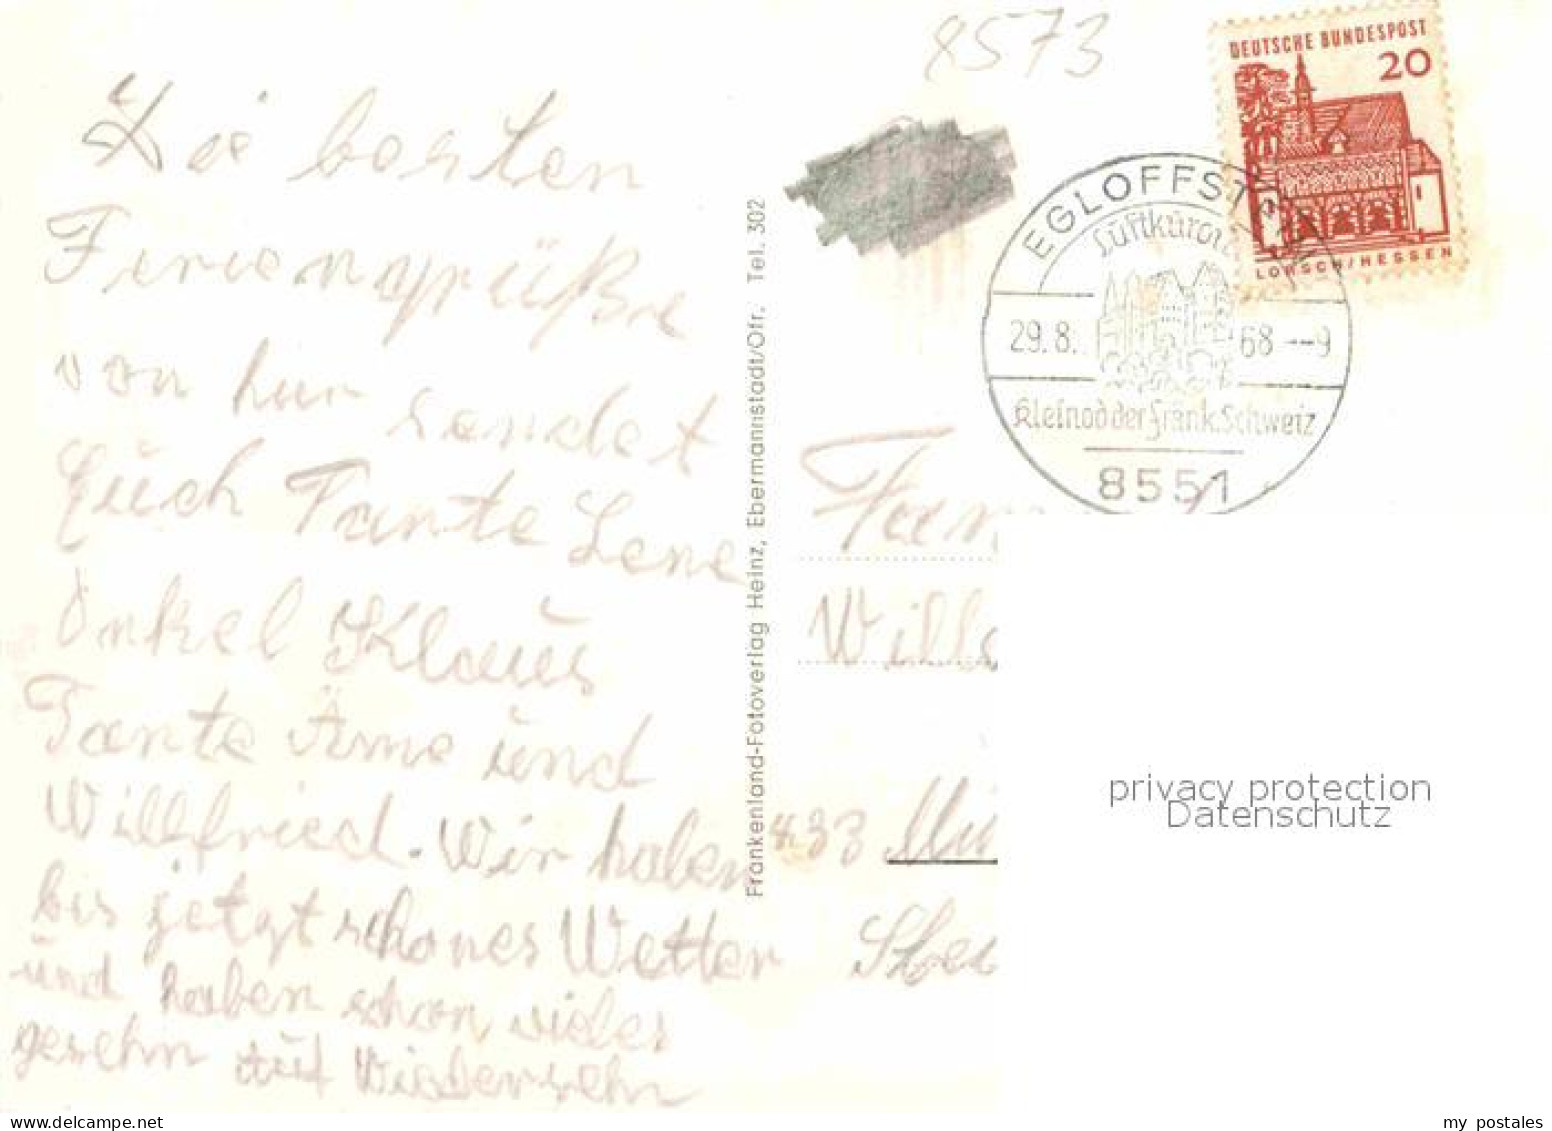 8573
DEUTSCHE BUNDESPOST
20
LORSCH/HESSEN
EGLOFFSTEIN
Luftkurort
29.8. 68 --9
Kleinod der Fränk. Schweiz
8551
Die besten
Feriengrüße
von hier sendet
Euch Tante Lene
Onkel Klaus
Tante Änne und
Willfried. Wir haben
bis jetzt schönes Wetter
und haben schon vieles
gesehn Auf Wiedersehn
Frankenland-Fotoverlag Heinz, Ebermannstadt/Ofr. Tel. 302
Fam
Will
433 Mü
privacy protection
Datenschutz
my postales